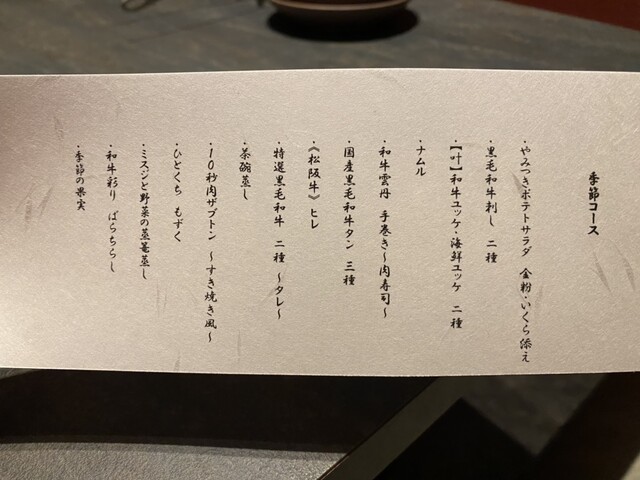 季節コース
・やみつきポテトサラダ 金粉・いくら添え
・黒毛和牛刺し 二種
・【叶】和牛ユッケ・海鮮ユッケ 二種
・ナムル
・和牛雲丹 手巻き～肉寿司～
・国産黒毛和牛タン 三種
・《松阪牛》ヒレ
・特選黒毛和牛 二種 ～タレ～
・茶碗蒸し
・10秒肉ザブトン ～すき焼き風～
・ひとくち もずく
・ミスジと野菜の蒸篭蒸し
・和牛彩り ばらちらし
・季節の果実